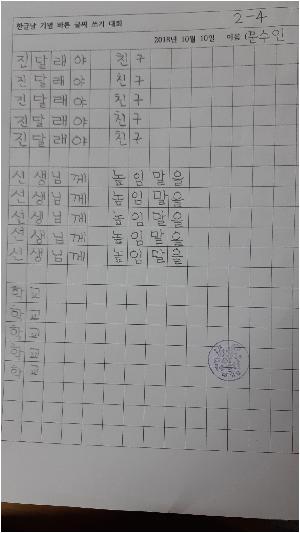 2-4
한글날 기념 바른 글씨 쓰기 대회
2018년 10월 10일 이름 (문수인
진달래야 친구
진달래야 친구
진달래야 친구
진달래야 친구
진달래야 친구
선생님께 높임말을
선생님께 높임말을
선생님께 높임말을
선생님께 높임말을
선생님께 높임말을
학교
학교
학교
학교
학교